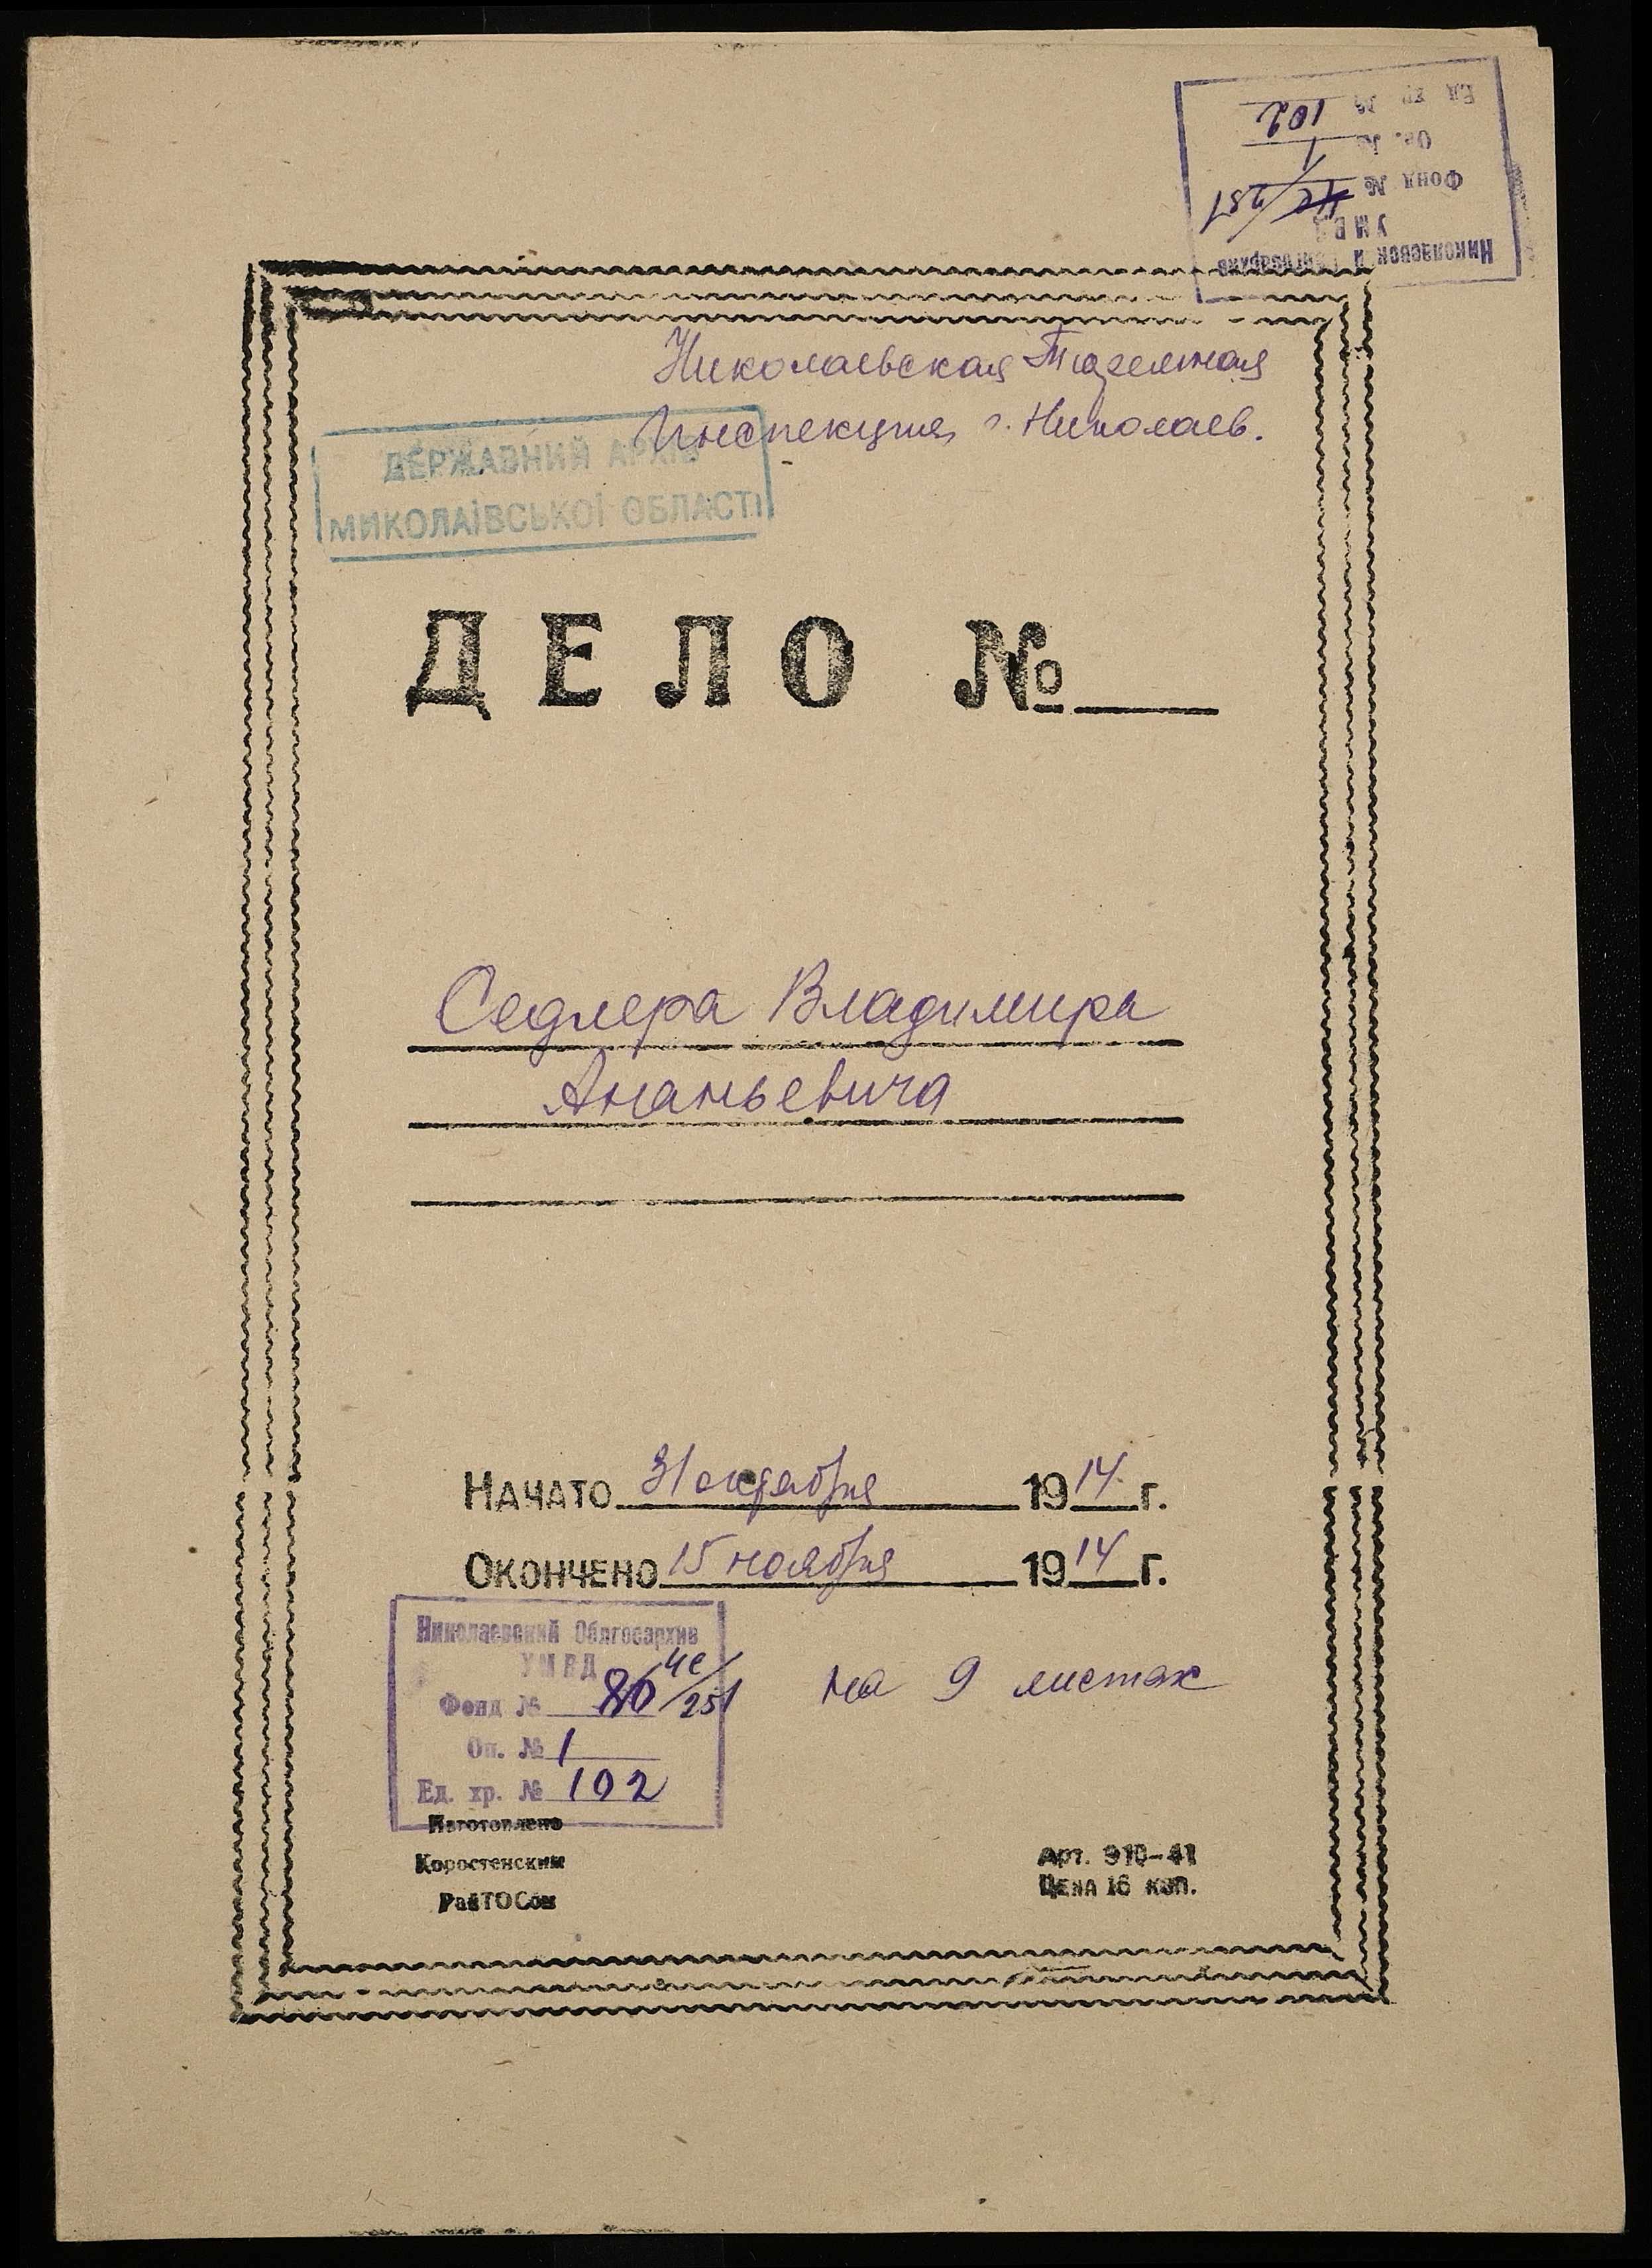 Ед. хр. № 102
Оп. № 1
Фонд № 4с/251
УМВД
Николаевский Облгосархив
Николаевская Тюремная
Инспекция г. Николаев.
ДЕРЖАВНИЙ АРХІВ
МИКОЛАЇВСЬКОЇ ОБЛАСТІ
ДЕЛО №
Седлера Владимира
Ананьевича
НАЧАТО 31 октября 1914 г.
ОКОНЧЕНО 15 ноября 1914 г.
Николаевский Облгосархив
УМВД
Фонд № 80 4с/251
на 9 листах
Оп. № 1
Ед. хр. № 102
Изготовлено
Коростенским
РайТОСом
Арт. 910-41
ЦЕНА 16 коп.